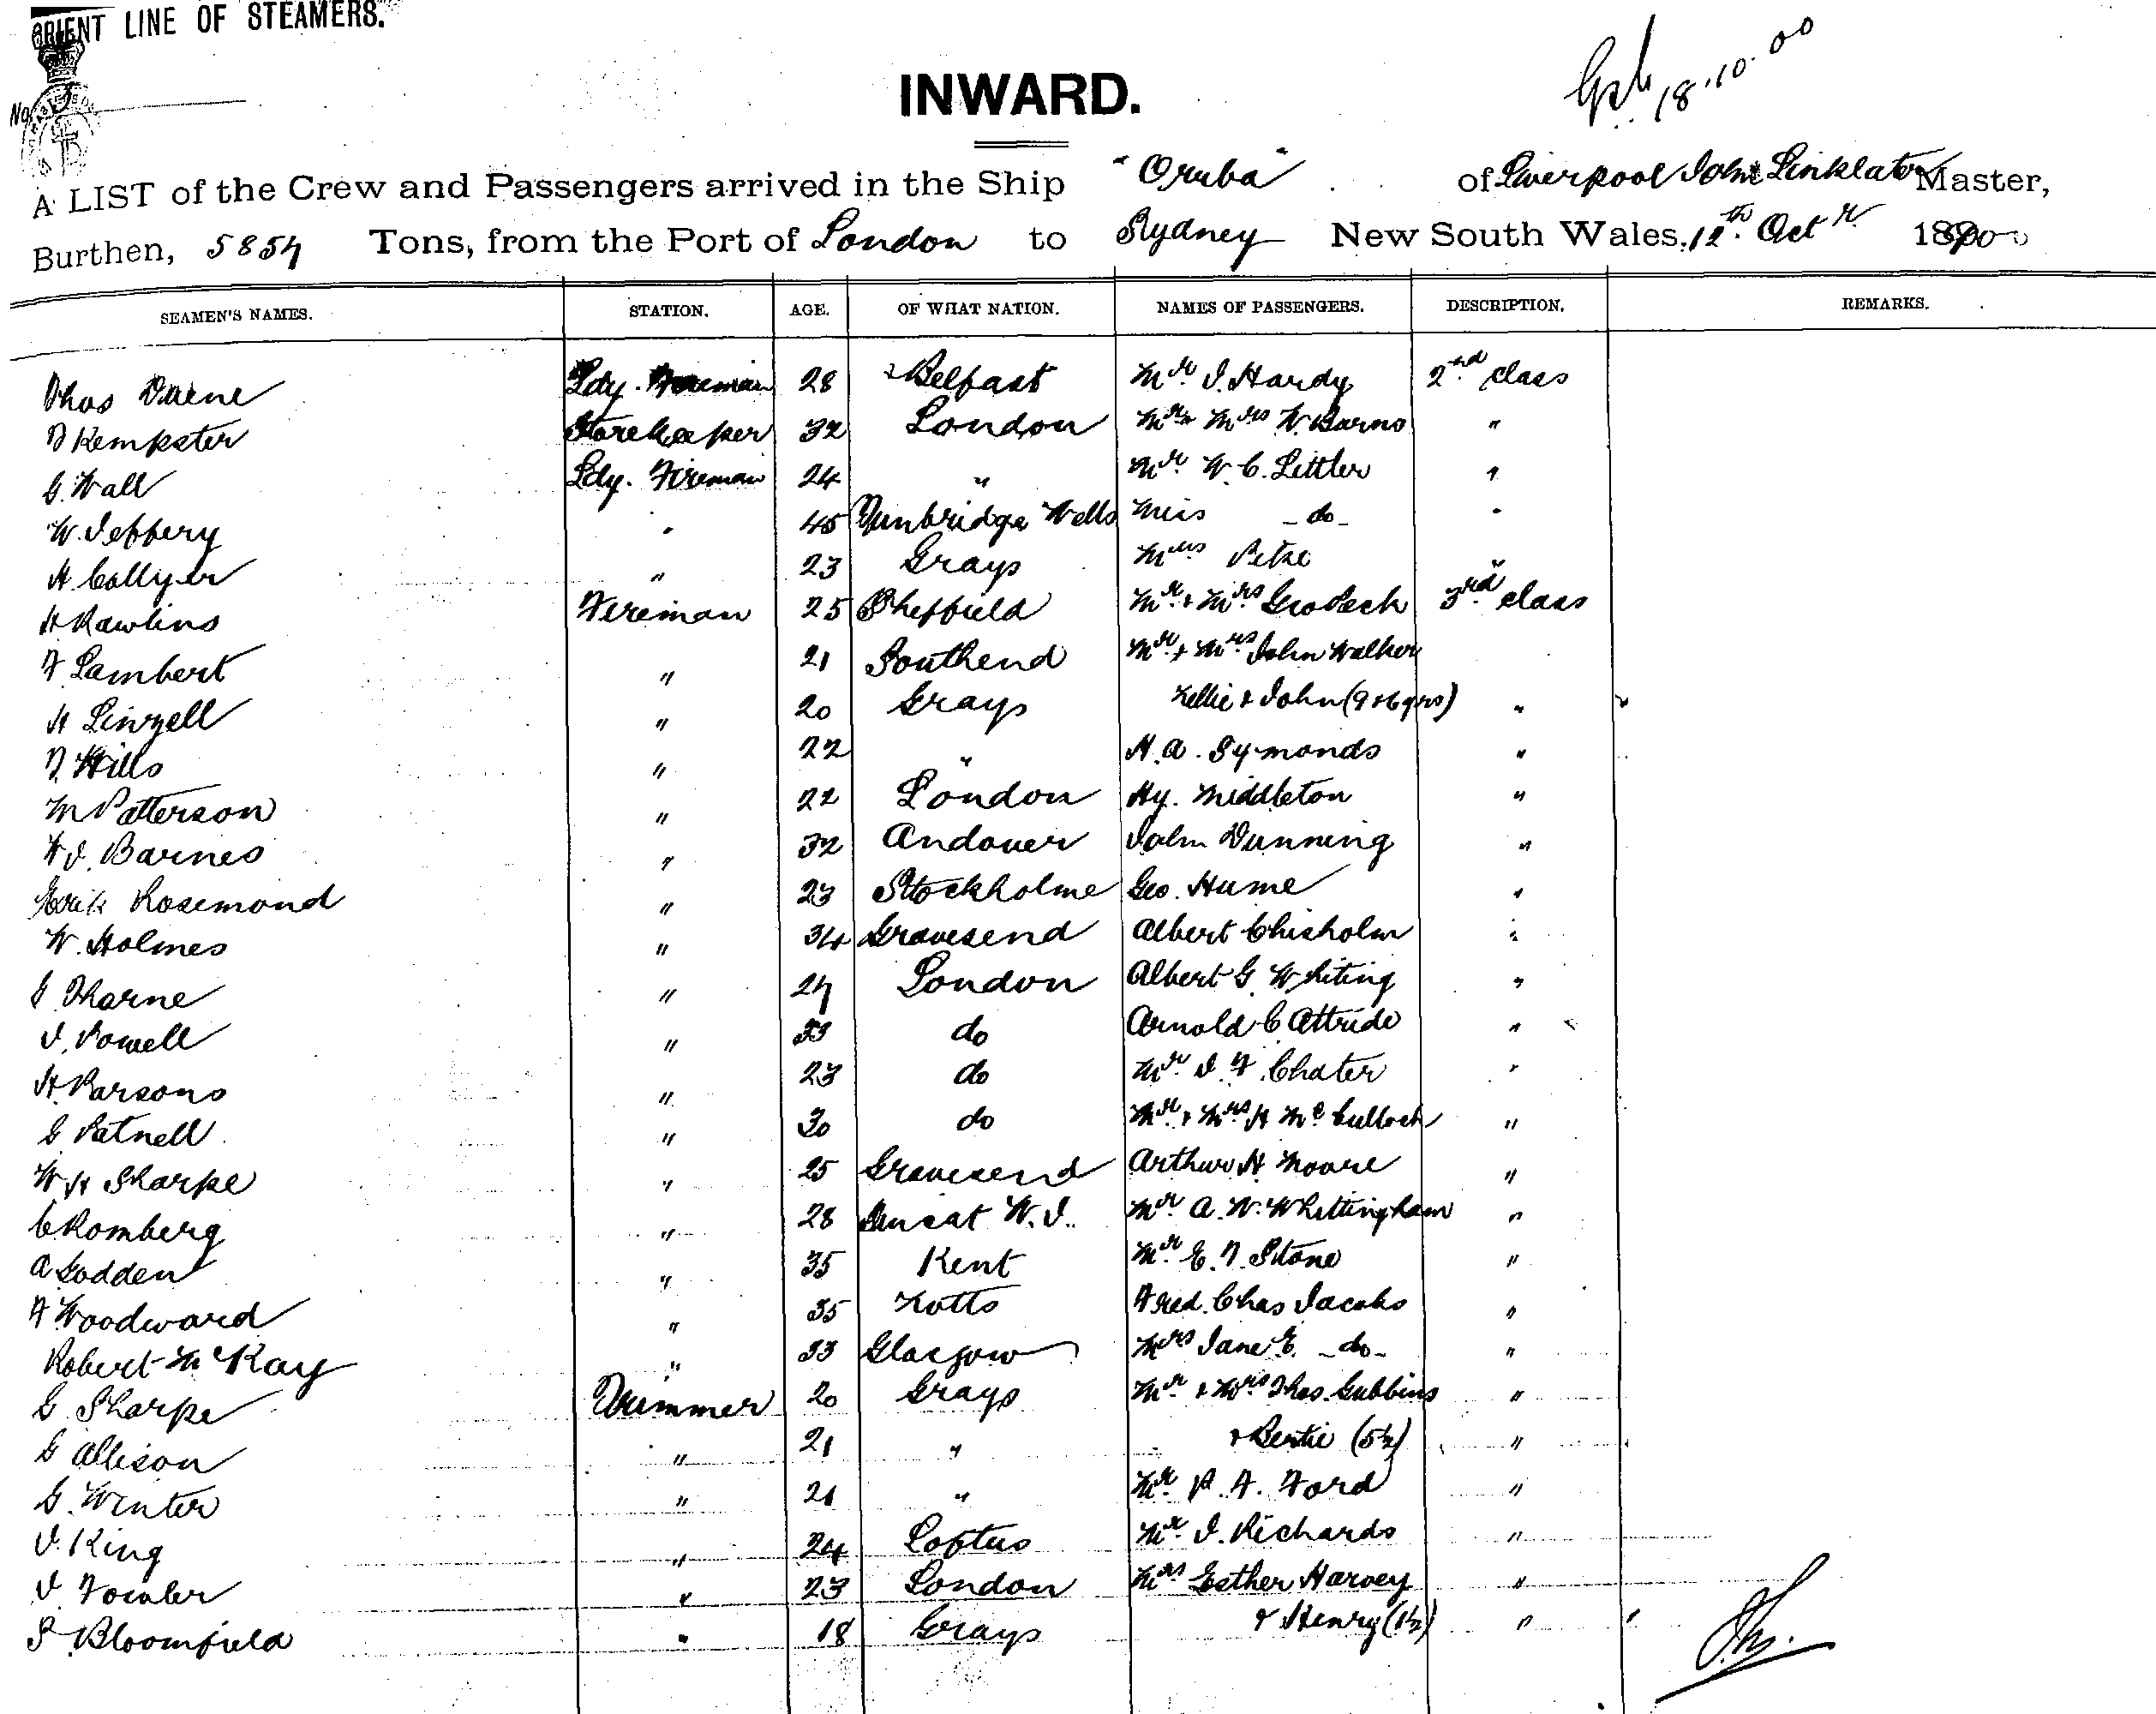 ORIENT LINE OF STEAMERS.
No.
18.10.00
INWARD.
A LIST of the Crew and Passengers arrived in the Ship "Oruba" of Liverpool John Linklater Master,
Burthen, 5854 Tons, from the Port of London to Sydney New South Wales, 12th. Octr. 1900
SEAMEN'S NAMES. STATION. AGE. OF WHAT NATION. NAMES OF PASSENGERS. DESCRIPTION. REMARKS.
Thos Ldy. Fireman 28 Belfast Mr. J. Hardy 2nd class
Kempster Storekeeper 32 London Mr & Mrs W. Barns "
G. Wall Ldy. Fireman 24 " Mr. W. C. Littler "
W. Jeffery " 45 Tunbridge Wells Miss - do - "
H. Collyer " 23 Grays Mrs Petre "
H Rawlins Fireman 25 Sheffield Mr. & Mrs Geo Peck 3rd class
F. Lambert " 21 Southend Mr. & Mrs John Walker
H Linzell " 20 Grays Nellie & John (9 & 6 yrs) "
T. Hills " 22 " H. A. Symonds "
M Patterson " 22 London Hy. Middleton "
Barnes " 32 Andover John Dunning "
Erik Rosemond " 23 Stockholme Geo. Hume "
W. Holmes " 34 Gravesend Albert Chisholm "
G Tharne " 24 London Albert G. Whiting "
J. Powell " 33 do Arnold C Attride "
H. Parsons " 23 do Mr. J. F. Chater "
G Patnell " 30 do Mr. & Mrs H McCulloch "
W H Sharpe " 25 Gravesend Arthur H Moore "
C Romberg " 28 W. I. Mr A. W. Whittingham "
A Godden " 35 Kent Mr. E. T. Stone "
F Woodward " 35 Notts Fred. Chas Jacobs "
Robert McKay " 33 Glasgow Mrs Jane E. - do - "
G Sharpe Trimmer 20 Grays Mr & Mrs Thos. Gubbins "
G Allison " 21 " & Bertie (5½) "
G. Winter " 21 " Mr. P. F. Ford "
J. King " 24 Loftus Mr. J. Richards "
J. Fowler " 23 London Mrs Esther Harvey "
S Bloomfield " 18 Grays & Henry (1½) "